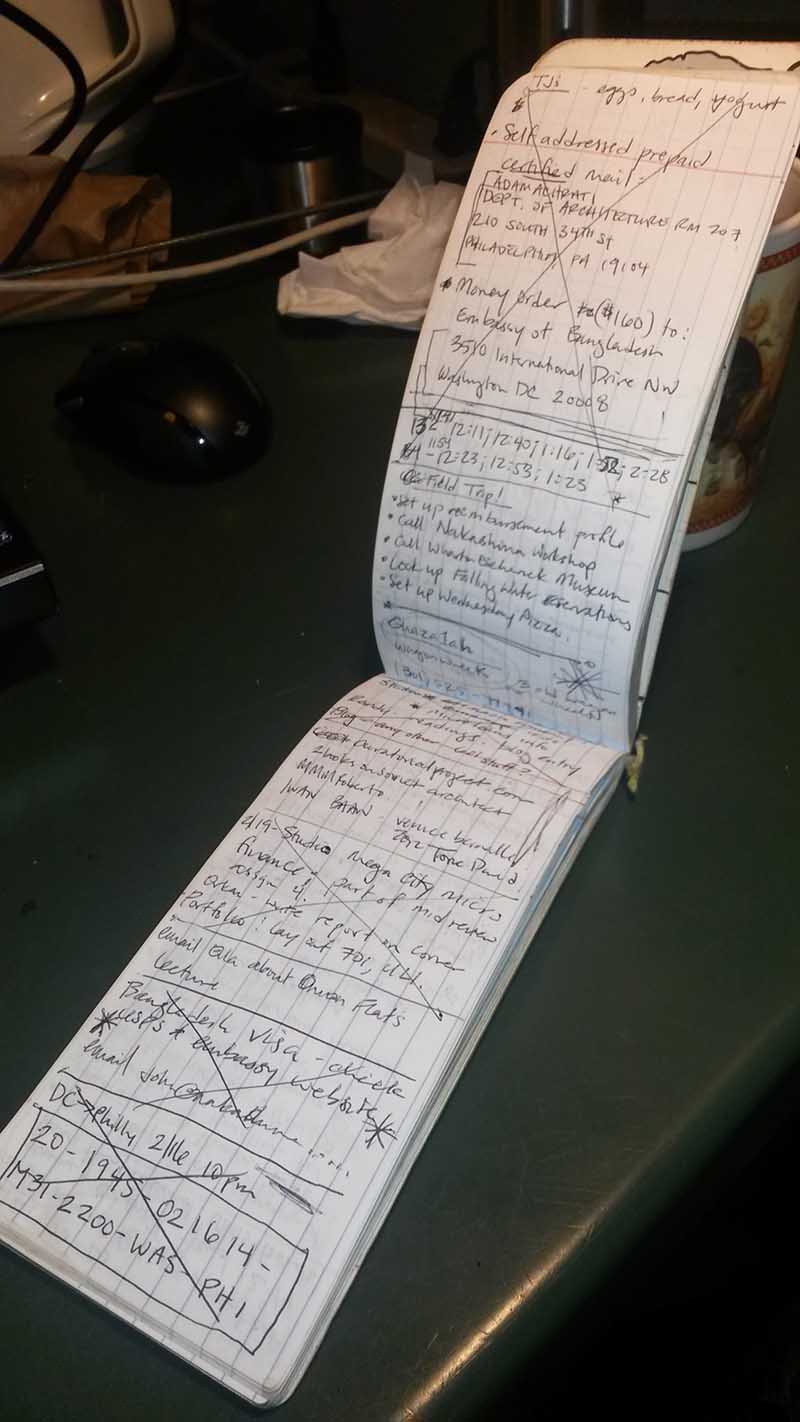 TJs - eggs, bread, yogurt
Self addressed prepaid
certified mail -
DEPT. OF ARCHITECTURE RM 207
210 SOUTH 34TH ST
PHILADELPHIA, PA 19104
Money order ($160) to:
Embassy of Bangladesh
3510 International Drive NW
Washington DC 20008
12:11; 12:40; 1:16; 1:52; 2:28
- 12:23; 12:53; 1:23
Field Trip!
• Set up reimbursement profile
• Call Nakashima Workshop
• Call Wharton Esherick Museum
• Look up Falling Water
• Set up Wednesday Pizza.
Ghazalah
readings. blog entry
Blog - any other
project.com
2 books on soviet architect
MMM Roberto
IWAN BAAN venice
2012
2/19 - Studio Mega City Micro
finance - part of mid review
assign 4.
- write report on corner
Portfolio: lay out 701,
email about Onion Flats
lecture
Bangladesh visa - check
USPS * embassy website
email
DC → Philly 2/16 10pm
20-1945-021614-
M31-2200-WAS-PHI